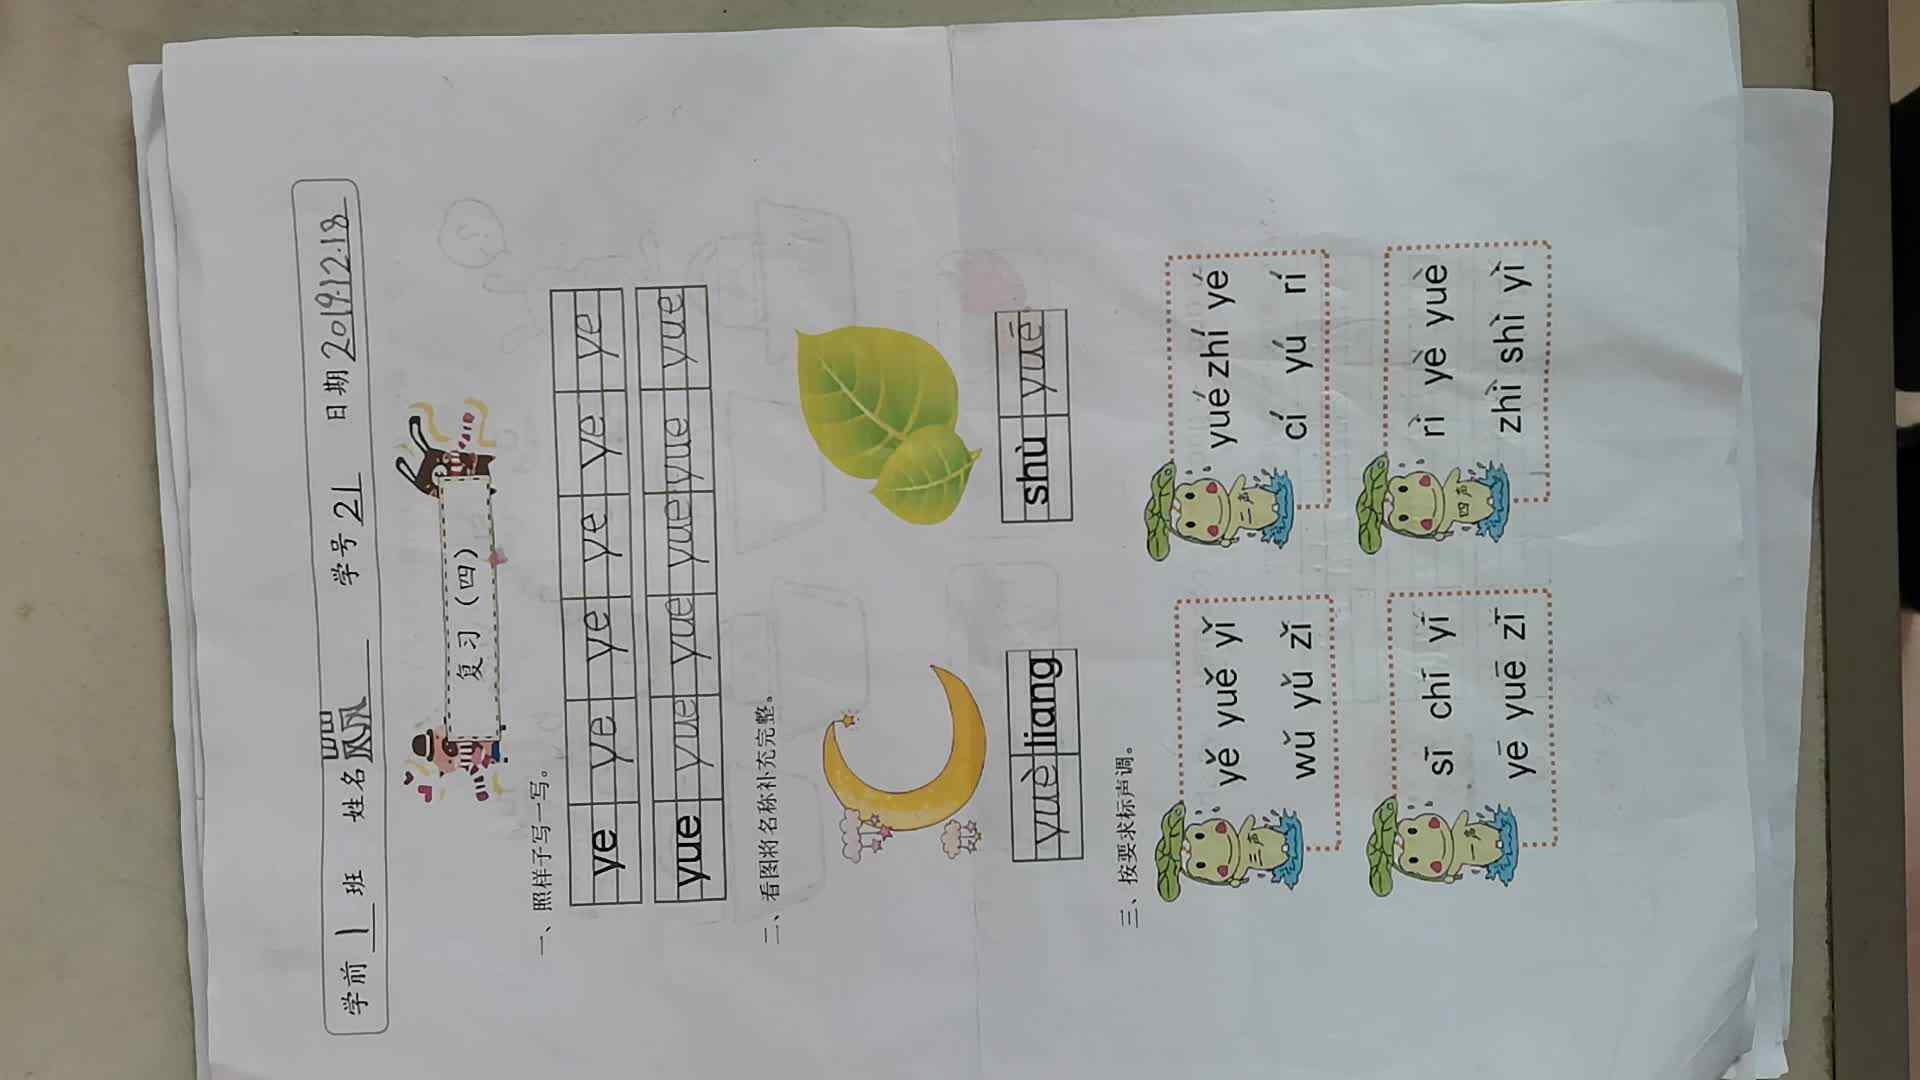 学前 1 班 姓名 学号 21 日期 2019.12.18
复习（四）
一、照样子写一写。
ye ye ye ye ye ye
yue yue yue yue yue yue
二、看图将名称补充完整。
yuè liang
shù yuē
三、按要求标声调。
三声
yě yuě yǐ
wǔ yǔ zǐ
二声
yué zhí yé
cí yú rí
一声
sī chī yī
yē yuē zī
四声
rì yè yuè
zhì shì yì